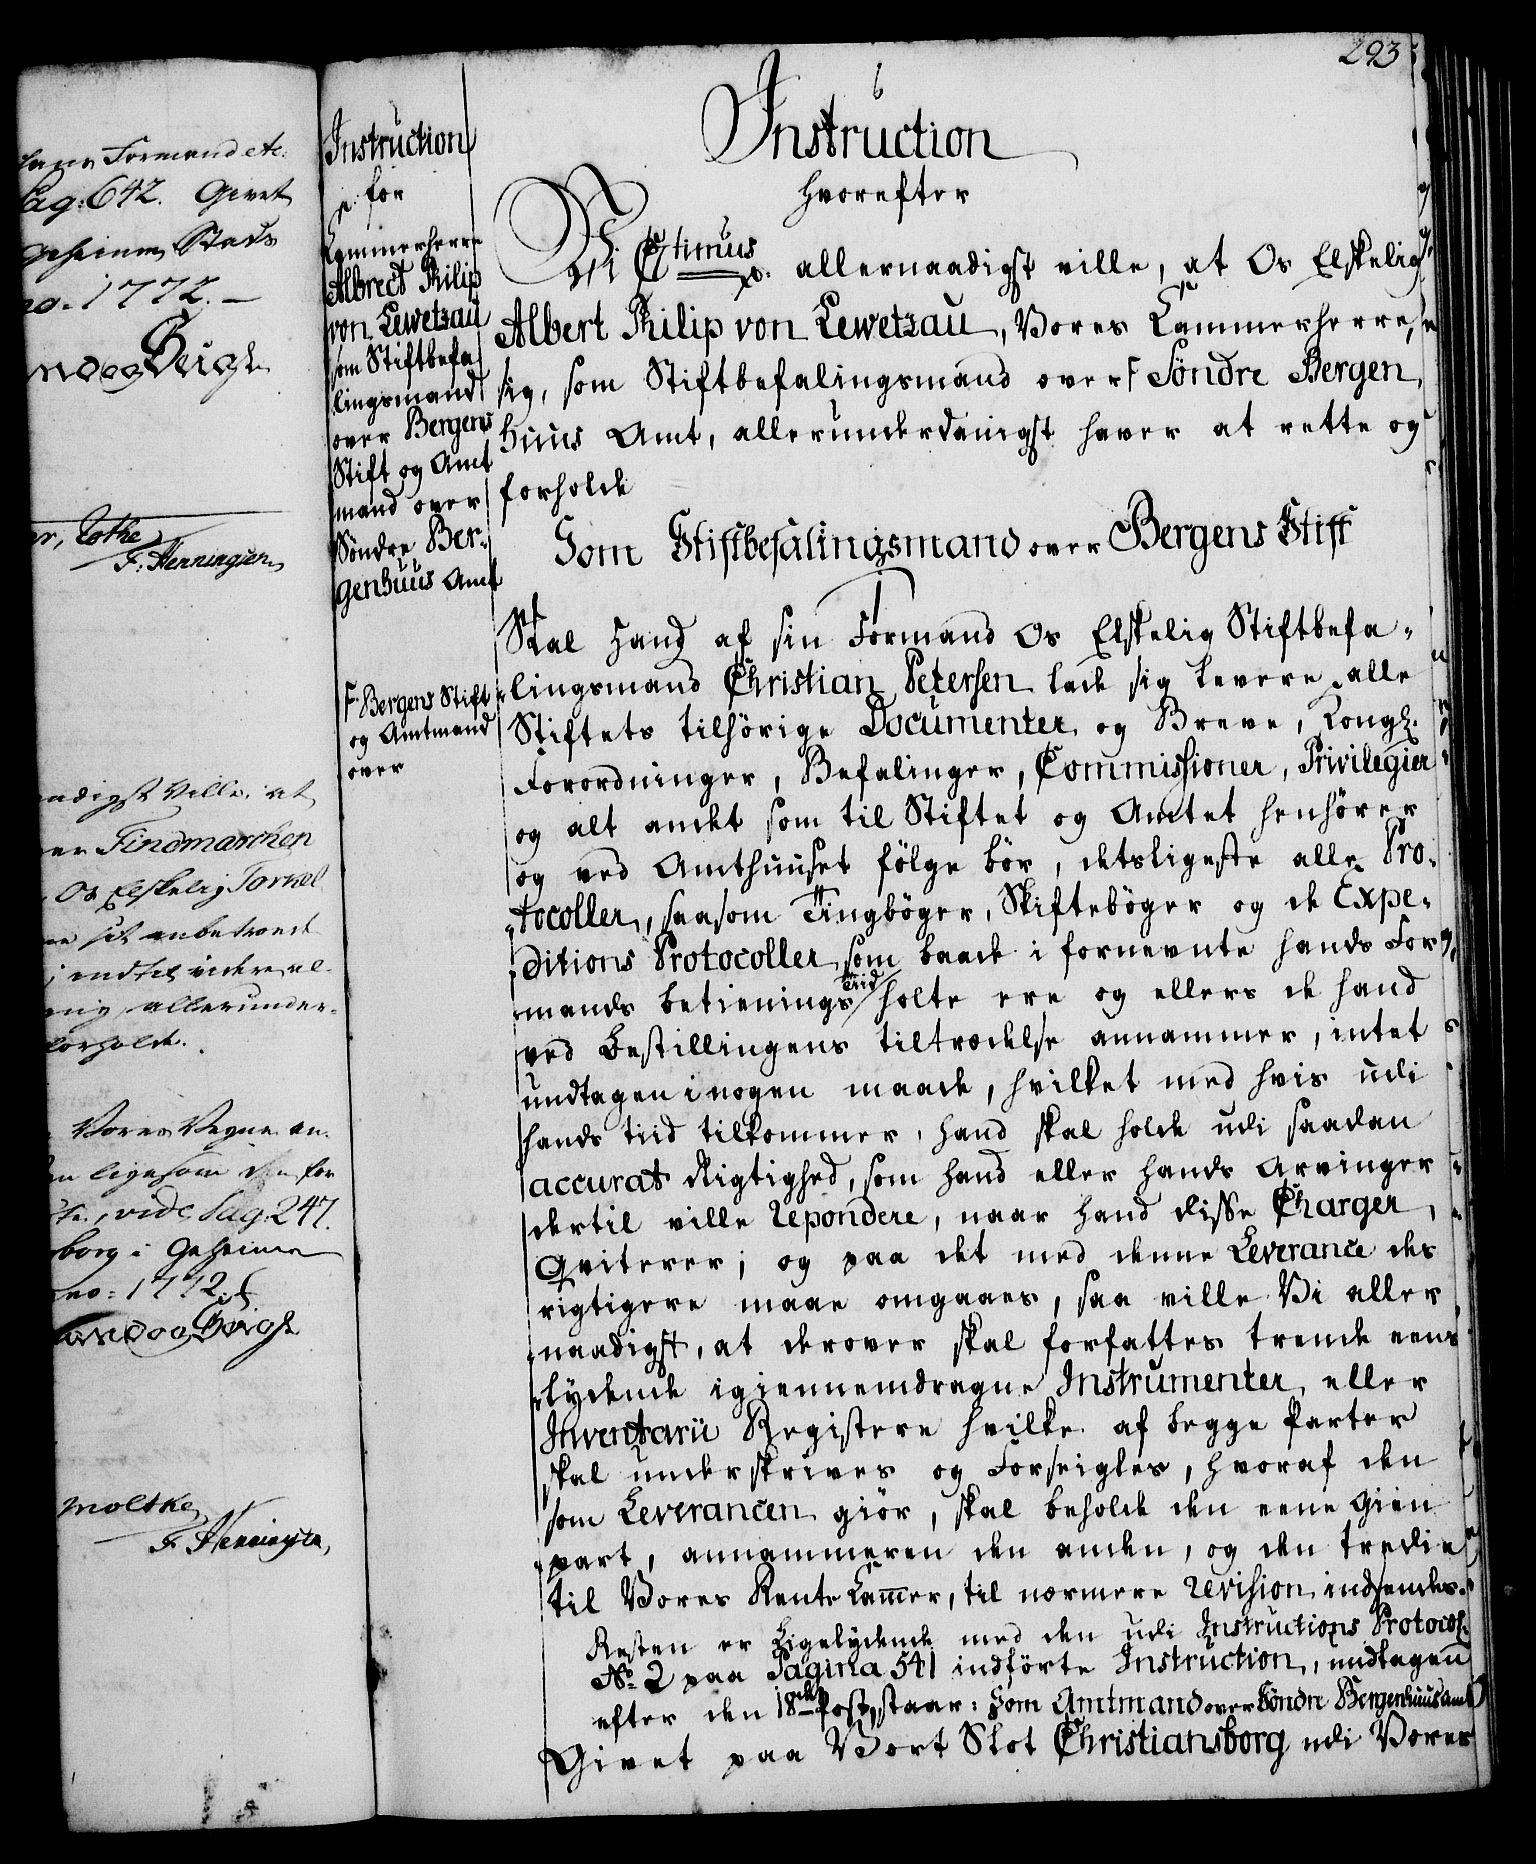 hans Formand etc.
Pag: 642. Givet
Geheime Stads
no. 1772. —
F. Henningsen
allernaadigst ville, at
over Findmarchen
Os Elskelig Torkel
allerunder-
forholde.
Vores Vegne an-
ligesom den for
vide Pag. 247.
borg i Geheime
no: 1772.
Moltke
F. Henningsen
293
Instruction
for
Kammerherre
Albrect Philip
von Lewetzau
som Stiftbefa
lingsmand
over Bergens
Stift og Amt
mand over
Søndre Ber-
genhuus Amt
F Bergens Stift
og Amtmand
over
Instruction
hvorefter
Vi Ctimus xv. allernaadigst ville, at Os Elskelig
Albert Philip von Lewetzau, Vores Kammerherre,
sig, som Stiftbefalingsmand over F Söndre Bergen
huus Amt, allerunderdanigst haver at rette og
forholde
Som Stiftbefalingsmand over Bergens Stift
Skal Hand af sin Formand Os Elskelig Stiftbefa-
lingsmand Christian Petersen lade sig levere alle
Stiftets tilhörige Documenter og Breve, Kongl.
Forordninger, Befalinger, Commissioner, Privilegier
og alt andet som til Stiftet og Amtet henhörer
og ved Amthuuset fölge bör, detsligeste alle Pro-
tocoller, saasom Tingböger, Skifteböger og de Expe-
ditions Protocoller som baade i fornevnte hands For
mands betienings Tiid holte ere og ellers de hand
ved Bestillingens tiltrædelse annammer, intet
undtagen i nogen maade, hvilket med hvis udi
hands tiid tilkommer, hand skal holde udi saadan
accurat Rigtighed, som hand eller hands Arvinger
dertil ville repondere, naar hand disse Charger
Qviterer; og paa det med denne Leverance des
rigtigere maae omgaaes, saa ville Vi aller
naadigst, at derover skal forfattes trende eens
lydende igiennemdragne Instrumenter eller
Inventarii Registere hvilke af begge Parter
skal underskrives og Forseigles, hvoraf den
som Leverancen giör, skal beholde den eene Gien
part, annammeren den anden, og den tredie
til Vores Rente Kammer, til nærmere revision indsendes.
Resten er Ligelydende med den udi Instructions Protocol
No. 2 paa Pagina 541 indförte Instruction, undtagen
efter den 18de Post, staar: Som Amtmand over Söndre Bergenhuus Amt
Givet paa Vort Slot Christiansborg udi Vores